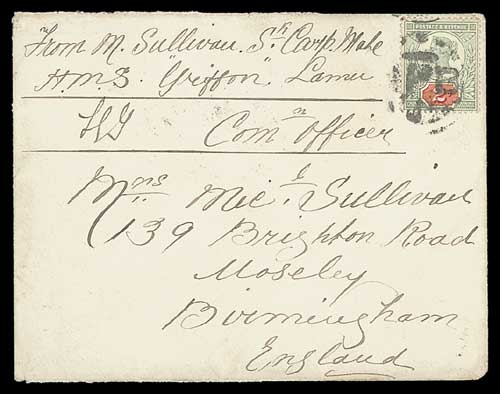 From M. Sullivan. Sk Carp Mate
H.M.S. "Griffon" Lamu
Comn Officer
Mrs Micl Sullivan
139 Brighton Road
Moseley
Birmingham
England